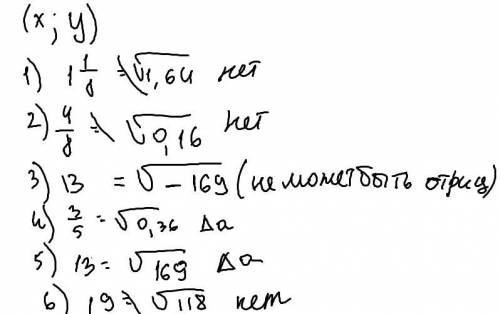 (x; y)
1) 1 1/8 ≠ √1,64 нет
2) 4/8 ≠ √0,16 нет
3) 13 = √-169 (не может быть отриц)
4) 3/5 = √0,36 Да
5) 13 = √169 Да
6) 19 ≠ √118 нет